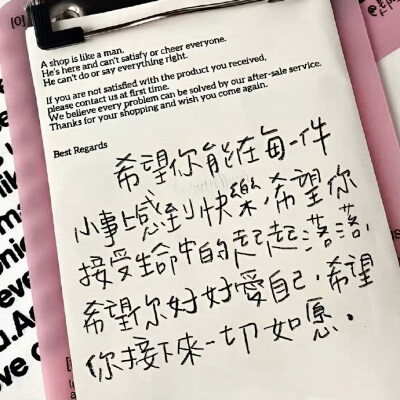 [0]
A shop is like a man.
He's here and can't satisfy or cheer everyone.
He can't do or say everything right.
If you are not satisfied with the product you received,
please contact us at first time.
We believe every problem can be solved by our after-sale service.
Thanks for your shopping and wish you come again.
Best Regards
希望你能在每一件
小事上感到快樂,希望你
接受生命中的起起落落,
希望你好好愛自己,希望
你接下來一切如愿.